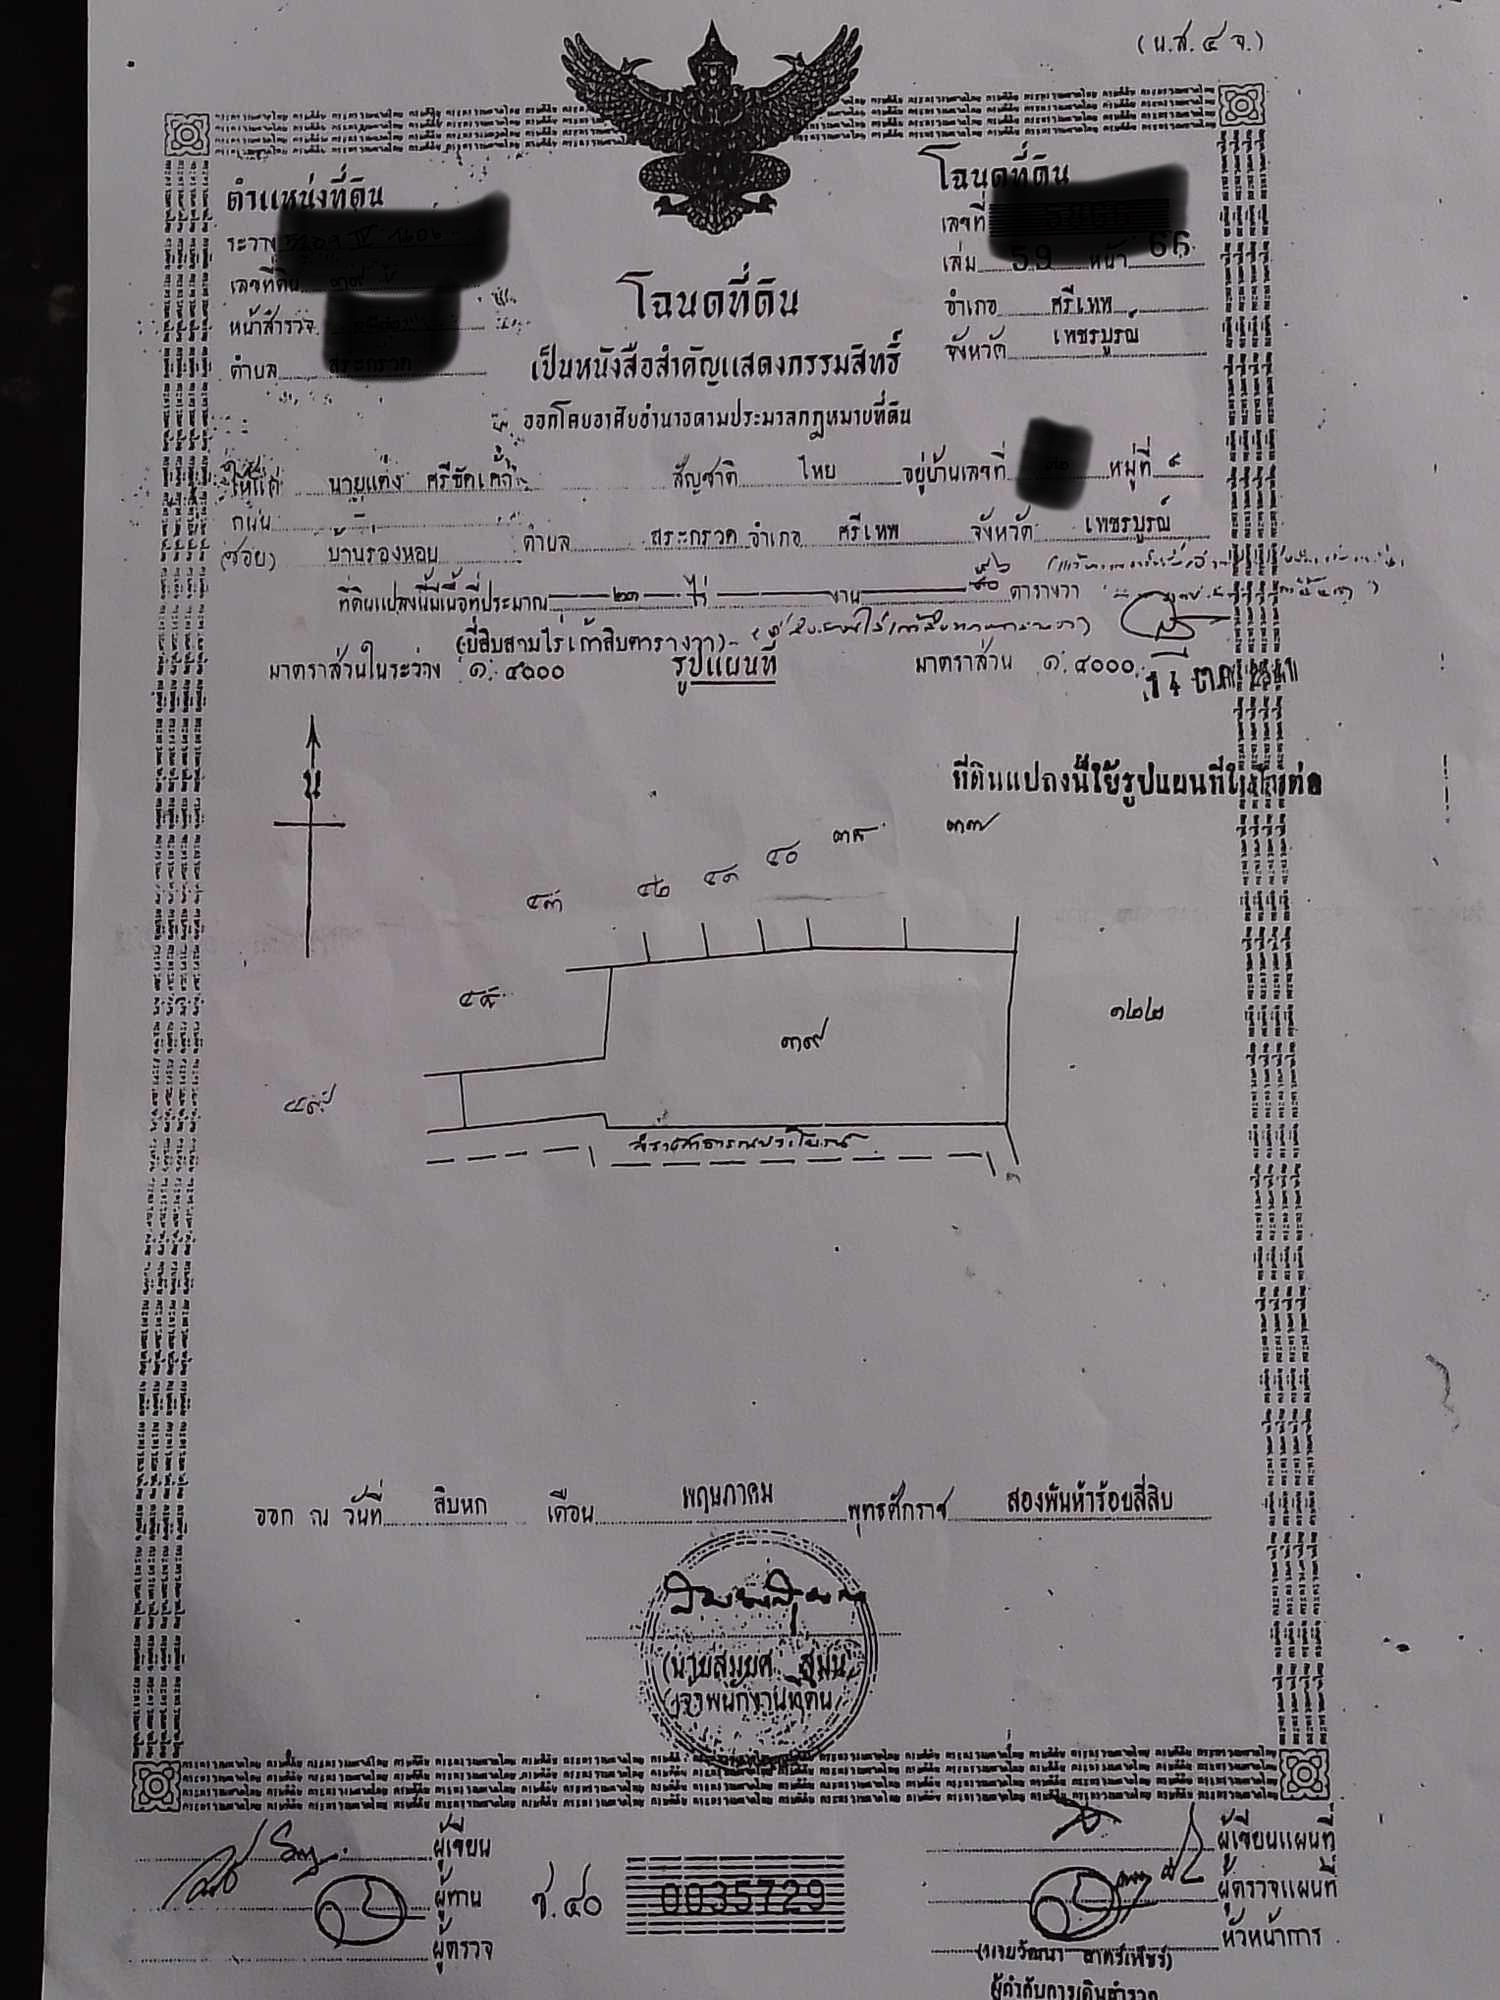 (น.ส. ๔ จ.)
ตำแหน่งที่ดิน
ระวาง
เลขที่ดิน
หน้าสำรวจ
ตำบล สระกรวด
โฉนดที่ดิน
เลขที่
เล่ม 59 หน้า 66
อำเภอ ศรีเทพ
จังหวัด เพชรบูรณ์
โฉนดที่ดิน
เป็นหนังสือสำคัญแสดงกรรมสิทธิ์
ออกโดยอาศัยอำนาจตามประมวลกฎหมายที่ดิน
ให้แก่ นายแต่ง สัญชาติ ไทย อยู่บ้านเลขที่ หมู่ที่
ถนน
(ซอย) บ้านร่องหอย ตำบล สระกรวด อำเภอ ศรีเทพ จังหวัด เพชรบูรณ์
ที่ดินแปลงนี้มีเนื้อที่ประมาณ ๒๓ ไร่ งาน ๙๐ ตารางวา
(ยี่สิบสามไร่เก้าสิบตารางวา)
มาตราส่วนในระวาง ๑:๔๐๐๐ รูปแผนที่ มาตราส่วน ๑:๔๐๐๐
น
ที่ดินแปลงนี้ใช้รูปแผนที่ในใบต่อ
๓๗
๔๐
๔๑
๔๒
๔๓
๓๙
๑๒๒
ทางสาธารณประโยชน์
ออก ณ วันที่ สิบหก เดือน พฤษภาคม พุทธศักราช สองพันห้าร้อยสี่สิบ
(นายสมยศ สุมน)
เจ้าพนักงานที่ดิน
ผู้เขียน
ผู้ทาน
ผู้ตรวจ
ช.๔๐
0035729
ผู้เขียนแผนที่
ผู้ตรวจแผนที่
หัวหน้าการ
ผู้กำกับการเดินสำรวจ